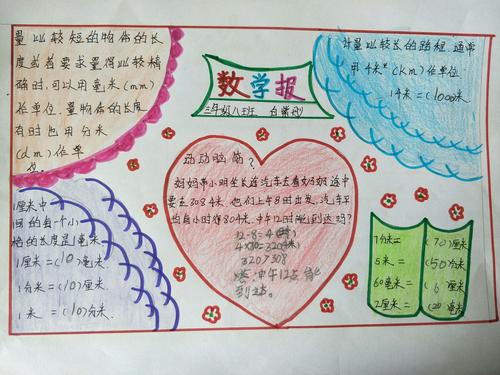 量比较短的物体的长
度或者要求量得比较精
确时,可以用毫米(mm)
作单位,量物体的长度
有时也用分米
(dm)作单
位。
数学报
三年级八班
计量比较长的路程,通常
用千米(km)作单位
1千米=(1000)米
动动脑筋?
妈妈带小明坐长途汽车去看奶奶,途中
要走308千米。他们上午8时出发,汽车平
均每小时行80千米,中午12时能到达吗?
12-8=4(时)
4×80=320(千米)
320>308
答:中午12点能
到达。
1厘米中
间的每一个小
格的长度是1毫米
1厘米=(10)毫米
1分米=(10)厘米
1米=(10)分米.
7分米=(70)厘米
5米=(50)分米
60毫米=(6)厘米
2厘米=(20)毫米